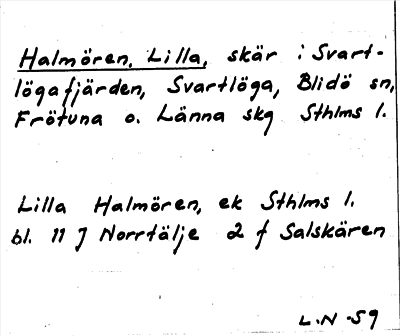 Halmören, Lilla, skär i Svart-
lögafjärden, Svartlöga, Blidö sn,
Frötuna o. Länna skg Sthlms l.
Lilla Halmören, ek Sthlms l.
bl. 11 J Norrtälje 2 f Salskären
L.N -59